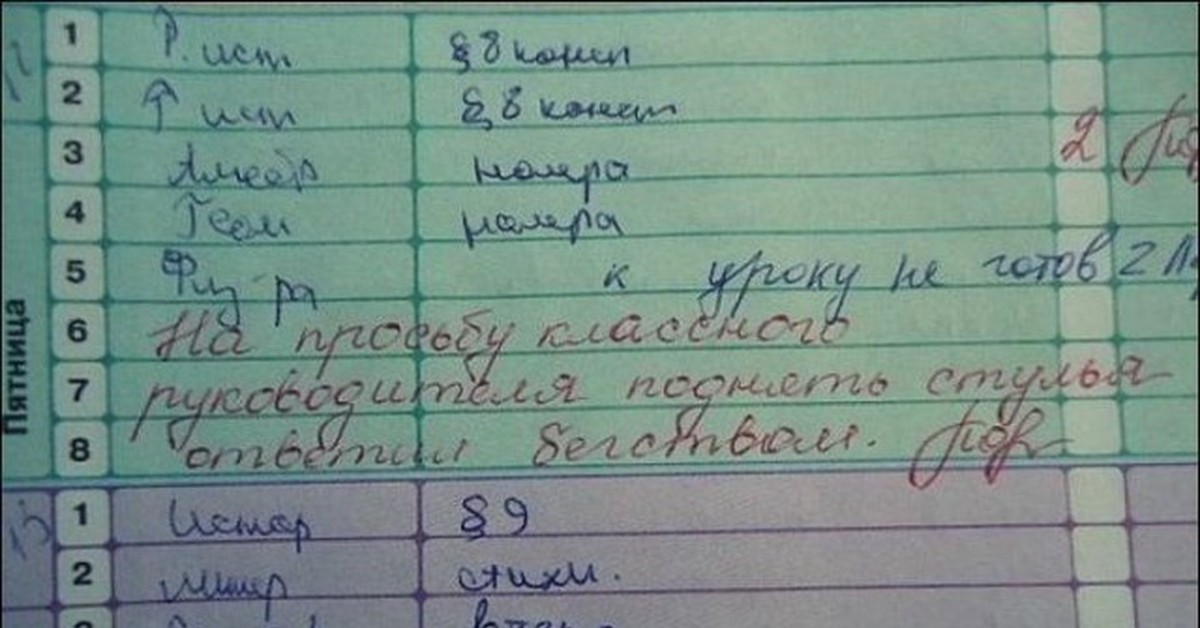 1 Р. ист § 8 консп
2 Р ист § 8 консп
3 Алгебр номера 2
4 Геом номера
5 Физ-ра к уроку не готов 2
6 На просьбу классного
7 руководителя поднять стулья
8 ответил бегством.
Пятница
1 Истор § 9
2 Литер стихи.